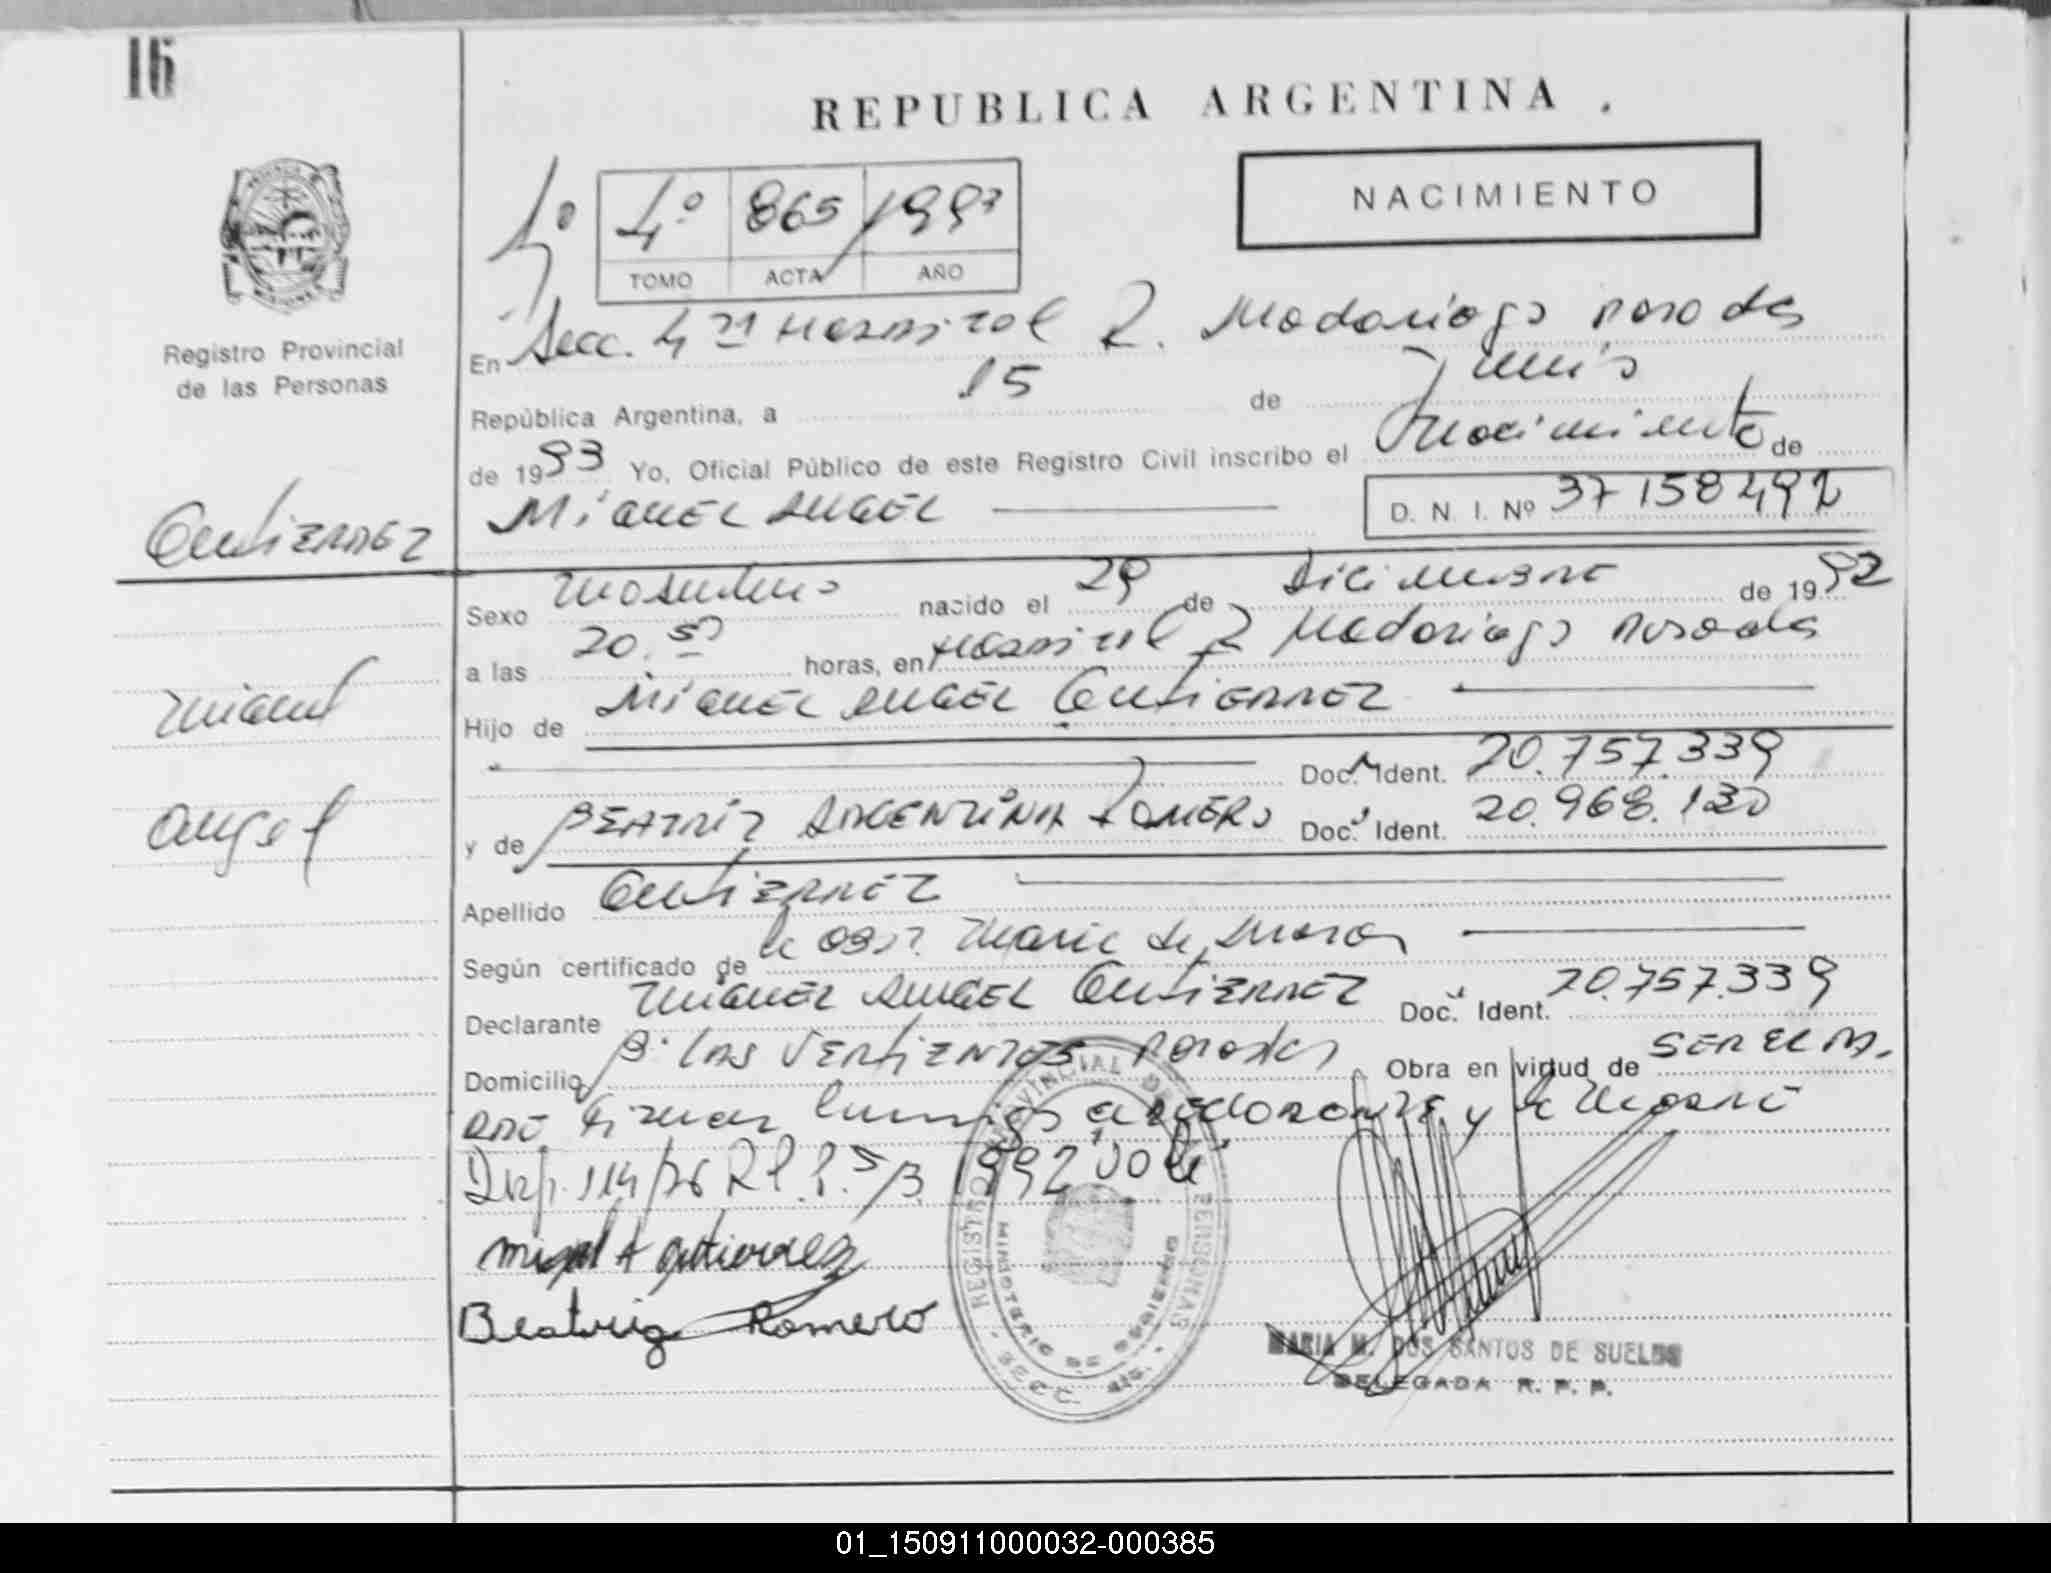 16
REPUBLICA ARGENTINA .
NACIMIENTO
4º 4º 865 / 1993
TOMO ACTA AÑO
Registro Provincial
de las Personas
En Secc. 4 ta Hospital R. Madariaga Posadas
República Argentina, a 15 de Junio
de 1993 Yo, Oficial Público de este Registro Civil inscribo el nacimiento de
Gutierrez
MiGUEL ANGEL
D. N. I. Nº 37158492
Sexo masculino nacido el 29 de Diciembre de 1992
a las 20.50 horas, en Hospital R Madariaga Posadas
Miguel
Hijo de MiGUEL ANGEL GutiERREZ
Doc. Ident. 20.757.339
Angel
y de BEATRiZ ARGENTiNA ROMERO Doc. Ident. 20.968.130
Apellido GutiERREZ
Según certificado de la obst. Maria de
Declarante MiGUEL ANGEL GutiERREZ Doc. Ident. 20.757.339
Domicilio Bº LAS VERtiENTES Posadas Obra en virtud de SER EL PA.
DRE firman conmigo el declarante y la madre
Disp. 114/76 R.P.P. S/B 1992 vale
Miguel A gutierrez
Beatriz Romero
REGISTRO PROVINCIAL DE LAS PERSONAS
MINISTERIO DE GOBIERNO
MARIA M. DOS SANTOS DE SUELDO
DELEGADA R. P. P.
01_150911000032-000385